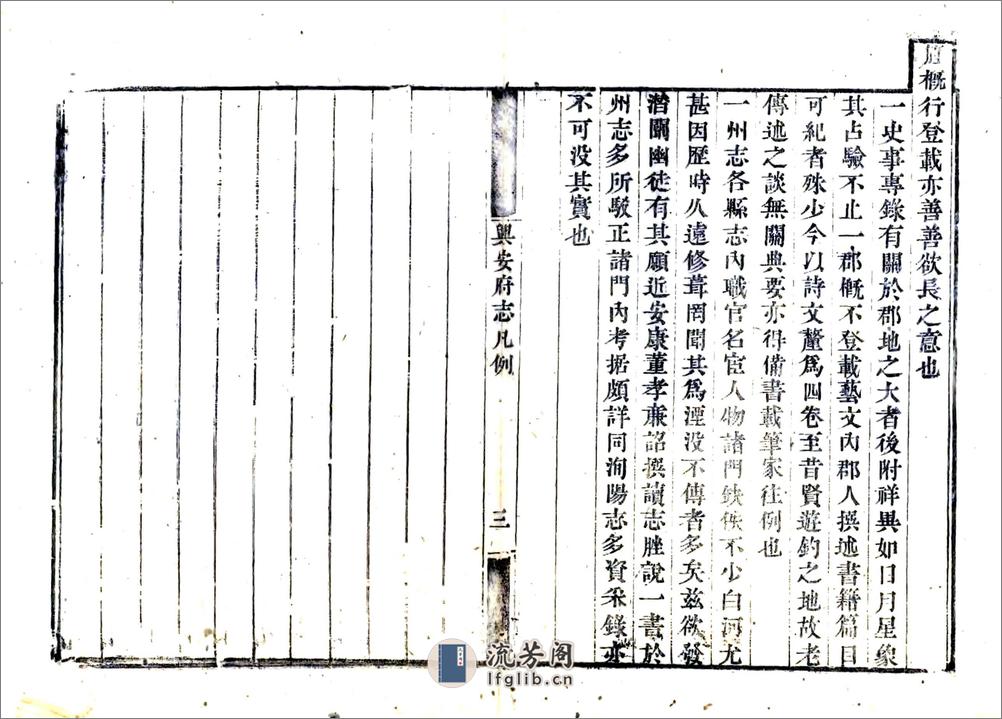 概行登載亦善善欲長之意也
一史事專錄有關於郡地之大者後附祥異如日月星象
其占驗不止一郡概不登載藝文內郡人撰述書籍篇目
可紀者殊少今以詩文釐爲四卷至昔賢遊釣之地故老
傳述之談無關典要亦得備書載筆家往例也
一州志各縣志內職官名宦人物諸門缺佚不少白河尤
甚因歷時久遠修葺罔聞其爲湮没不傳者多矣茲欲發
潛闡幽徒有其願近安康董孝亷詔撰讀志脞說一書於
州志多所駁正諸門內考据頗詳同洵陽志多資采錄亦
不可没其實也
興安府志凡例
三
流芳阁
lfglib.cn